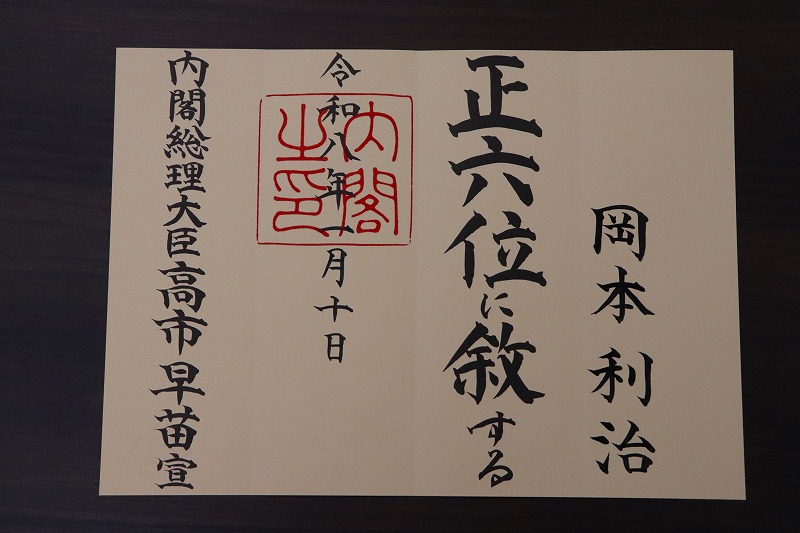 岡本利治
正六位に敘する
令和八年一月十日
内閣之印
内閣総理大臣高市早苗宣